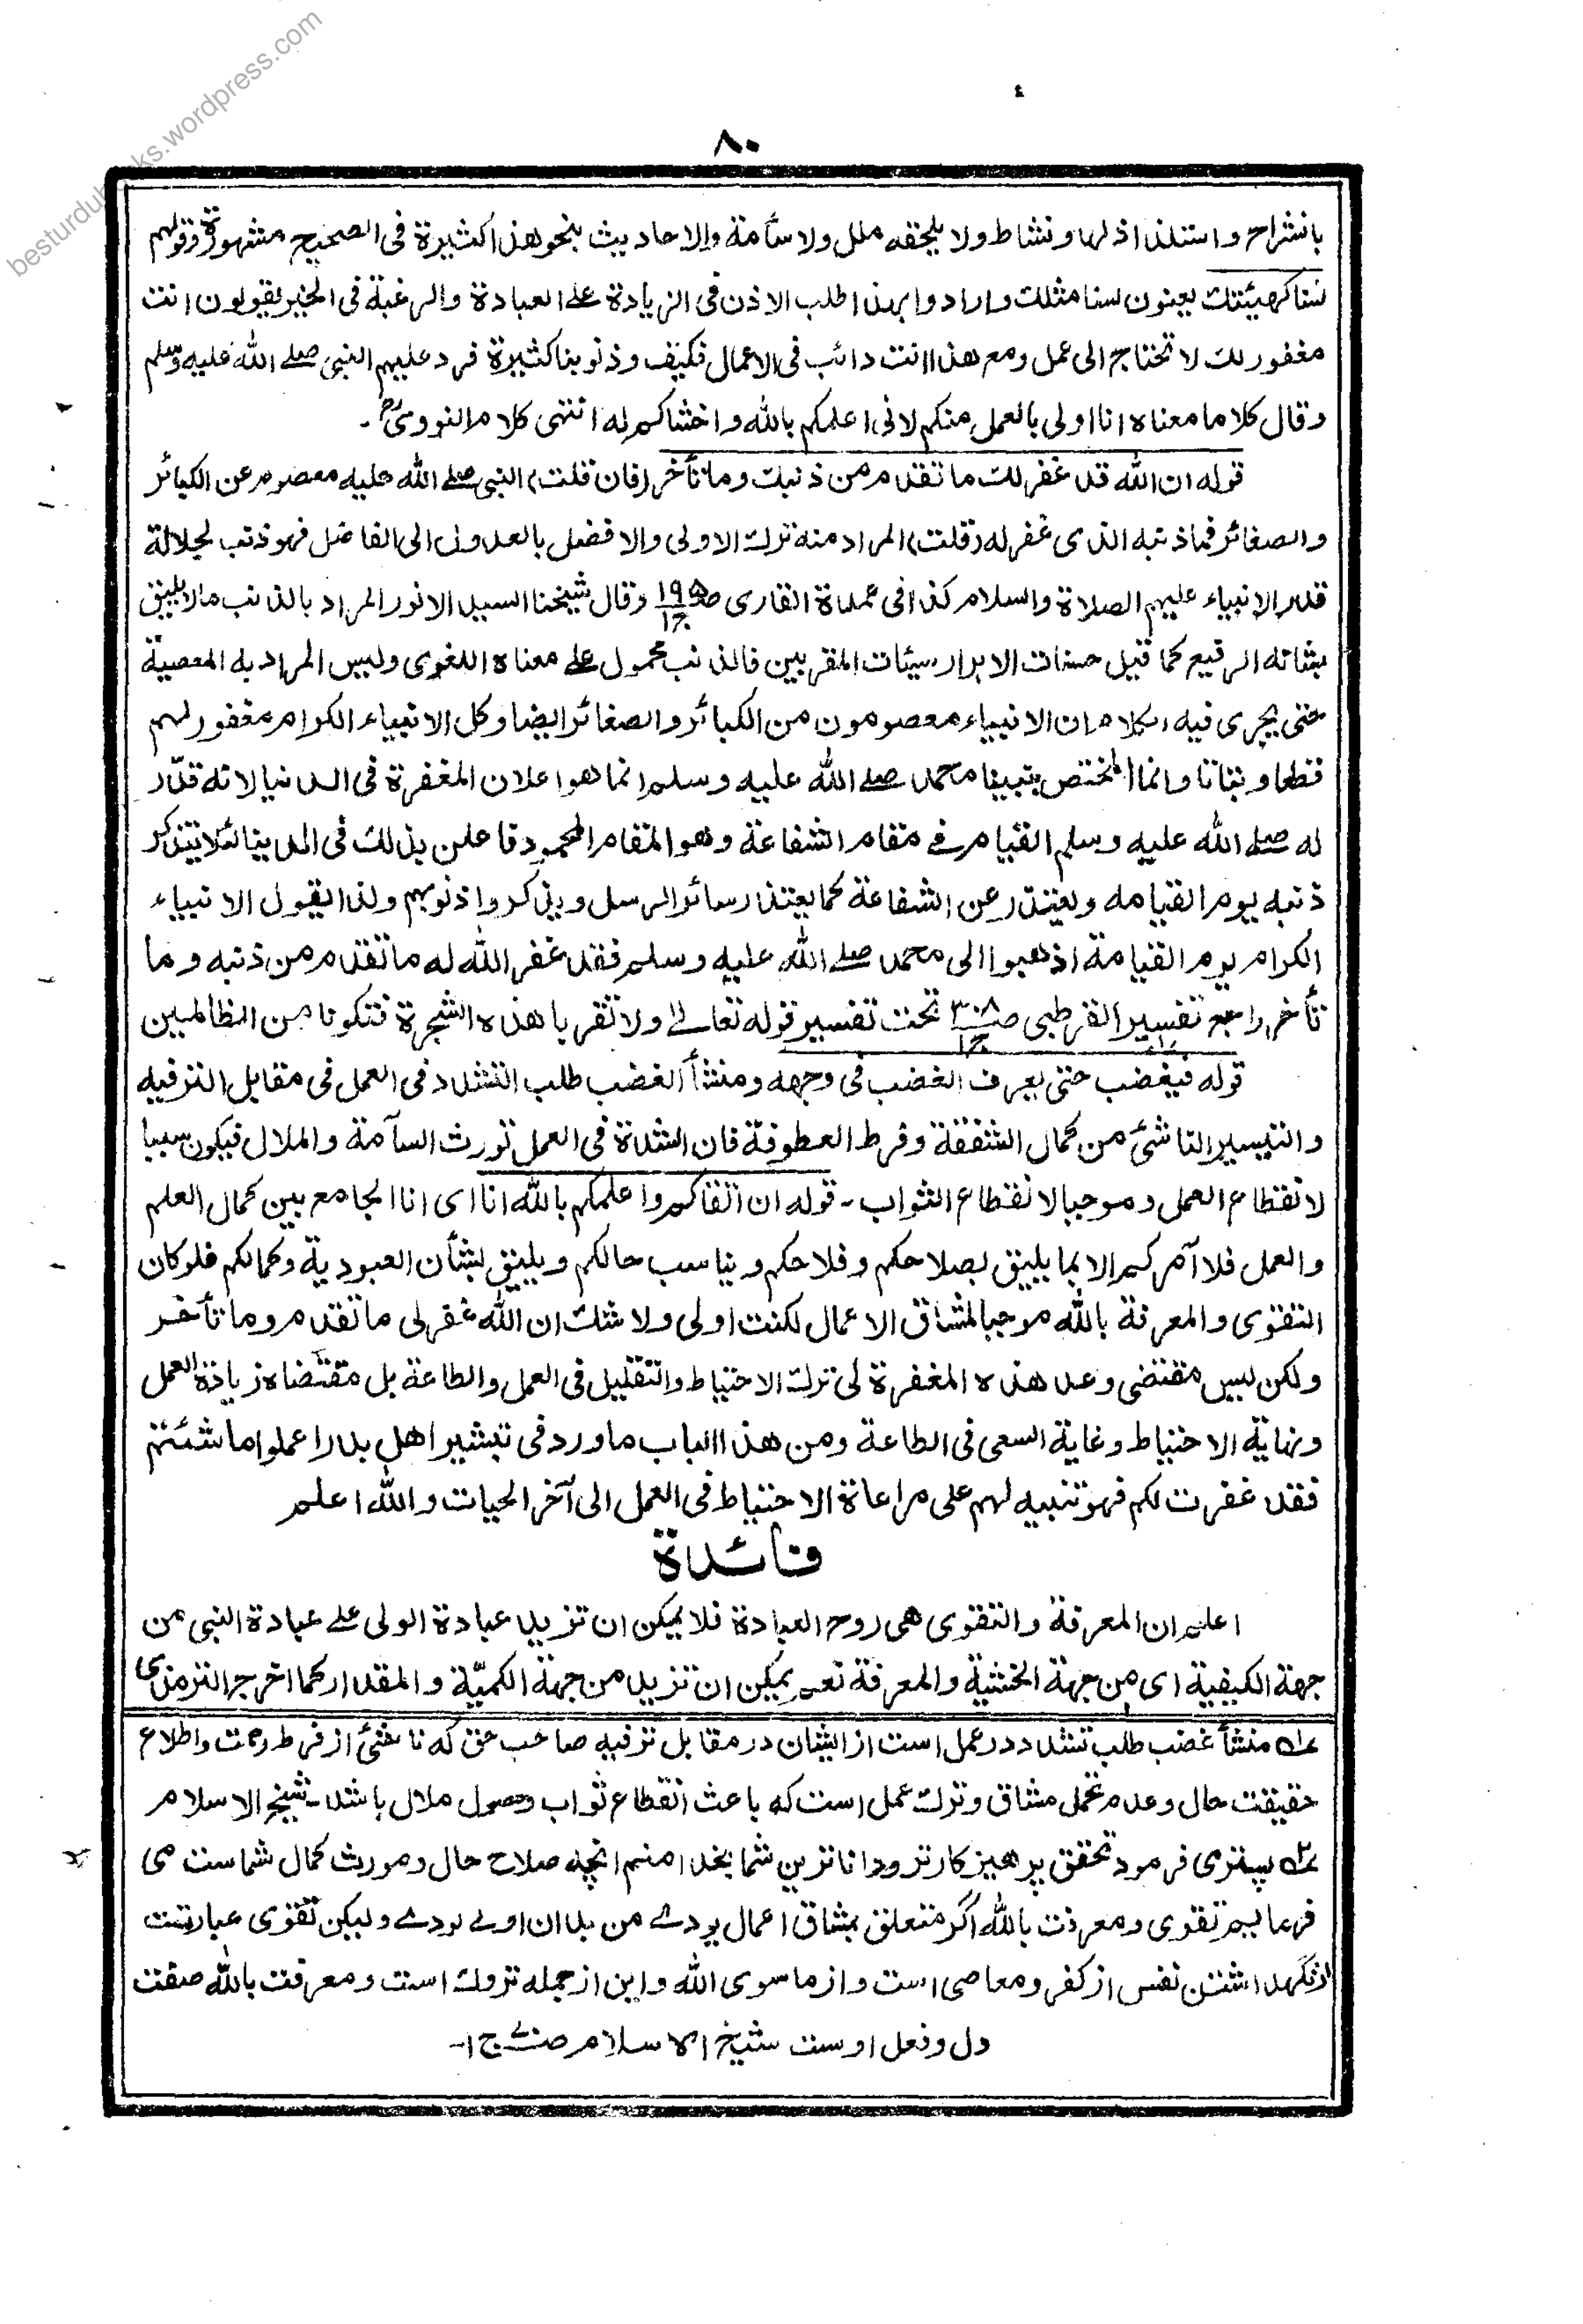 besturdubooks.wordpress.com
٨٠
بانشراح واستلذاذ لها ونشاط ولا يلحقه ملل ولا سأمة والاحاديث بنحو هذا كثيرة فى الصحيح مشهورة وقولهم
لسنا كهيئتك يعنون لسنا مثلك وارادوا بهذا طلب الاذن فى الزيادة على العبادة والرغبة فى الخير يقولون انت
مغفور لك لا تحتاج الى عمل ومع هذا انت دائب فى الاعمال فكيف وذنوبنا كثيرة فرد عليهم النبى صلے الله عليه وسلم
وقال كلاما معناه انا اولى بالعمل منكم لانى اعلمكم بالله واخشاكم له انتهى كلام النووىؒ۔
قوله ان الله قد غفر لك ما تقدم من ذنبك وما تأخر (فان قلت) النبى صلے الله عليه معصوم عن الكبائر
والصغائر فما ذنبه الذى غفر له (قلت) المراد منه ترك الاولى والافضل بالعدول الى الفاضل فهو ذنب لجلالة
قدر الانبياء عليهم الصلاة والسلام كذا فى عمدة القارى ص١٩٥ ج١ وقال شيخنا السيد الانور المراد بالذنب مالا يليق
بشانه الرفيع كما قيل حسنات الابرار سيئات المقربين فالذنب محمول على معناه اللغوى وليس المراد به المعصية
حتى يجرى فيه الكلام ان الانبياء معصومون من الكبائر والصغائر ايضا وكل الانبياء الكرام مغفور لهم
قطعا وبتاتا وانما المختص بنبينا محمد صلے الله عليه وسلم انما هو اعلان المغفرة فى الدنيا لانه قدّر
له صلے الله عليه وسلم القيام فى مقام الشفاعة وهو المقام المحمود فاعلن بذلك فى الدنيا لئلا يتذكر
ذنبه يوم القيامه ويعتذر عن الشفاعة كما يعتذر سائر الرسل ويذكروا ذنوبهم ولذا يقول الانبياء
الكرام يوم القيامة اذهبوا الى محمد صلے الله عليه وسلم فقد غفر الله له ما تقدم من ذنبه وما
تأخر راجع تفسير القرطبى ص٣٠٨ ج١ تحت تفسير قوله تعالے ولا تقربا هذه الشجرة فتكونا من الظالمين
قوله فيغضب حتى يعرف الغضب فى وجهه ومنشأ الغضب طلب التشدد فى العمل فى مقابل الترفيه
والتيسير الناشئ من كمال الشفقة وفرط العطوفة فان الشدة فى العمل تورث السآمة والملال فيكون سببا
لانقطاع العمل وموجبا لانقطاع الثواب۔ قوله ان اتقاكم واعلمكم بالله انا اى انا الجامع بين كمال العلم
والعمل فلا آمركم الا بما يليق بصلاحكم وفلاحكم ويناسب حالكم ويليق بشأن العبودية وكمالكم فلو كان
التقوى والمعرفة بالله موجبا لمشاق الاعمال لكنت اولى ولا شك ان الله غفر لى ما تقدم وما تأخر
ولكن ليس مقتضى وعد هذه المغفرة لى ترك الاحتياط والتقليل فى العمل والطاعة بل مقتضاه زيادة العمل
ونهاية الاحتياط وغاية السعى فى الطاعة ومن هذا الباب ما ورد فى تبشير اهل بدر اعملوا ما شئتم
فقد غفرت لكم فهو تنبيه لهم على مراعاة الاحتياط فى العمل الى آخر الحيات والله اعلم
فائدة
اعلم ان المعرفة والتقوى هى روح العبادة فلا يمكن ان تزيد عبادة الولى على عبادة النبى من
جهة الكيفية اى من جهة الخشية والمعرفة نعم يمكن ان تزيد من جهة الكميّة والمقدار كما اخرج الترمذى
ے١ منشأ غضب طلب تشدد در عمل است از ايشان در مقابل ترفيه صاحب حق كه ناشئ از فرط رحمت واطلاع
حقيقت حال وعدم تحمل مشاق وترك عمل است كه باعث انقطاع ثواب وحصول ملال باشد۔ شيخ الاسلام
ے٢ پستری فرمود تحقق پرهيزكار ترو دانا ترين شما بخدا منم انچه صلاح حال ومورث كمال شماست مى
فرمايم تقوى ومعرفت بالله اگر متعلق بمشاق اعمال بودے من بداں اولے بودے وليكن تقوى عبارتست
از نگهداشتن نفس از كفر ومعاصى است واز ما سوى الله واين از جمله تروك است ومعرفت بالله صفت
دل وفعل اوست شيخ الاسلام ج١۔